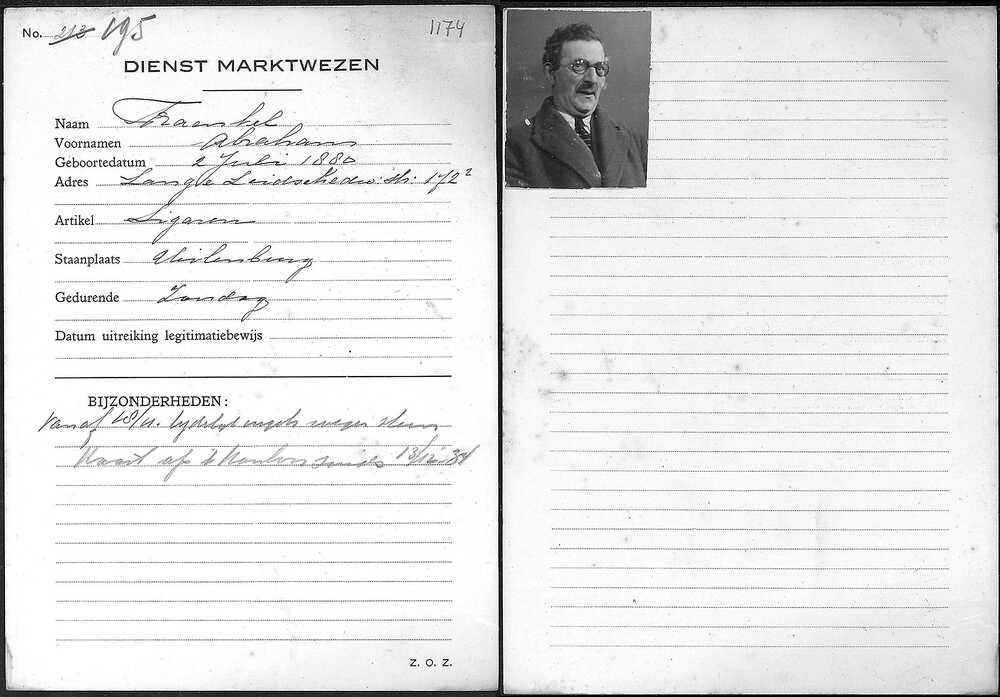 No. 213 195
1174
DIENST MARKTWEZEN
Naam Fraenkel
Voornamen Abraham
Geboortedatum 2 Juli 1880
Adres Lange Leidschedw: str: 172²
Artikel Sigaren
Staanplaats Uilenburg
Gedurende Zondag
Datum uitreiking legitimatiebewijs
BIJZONDERHEDEN:
Vanaf 18/11.
Kaart op 't Kantoor sinds 13/12 '34
Z. O. Z.